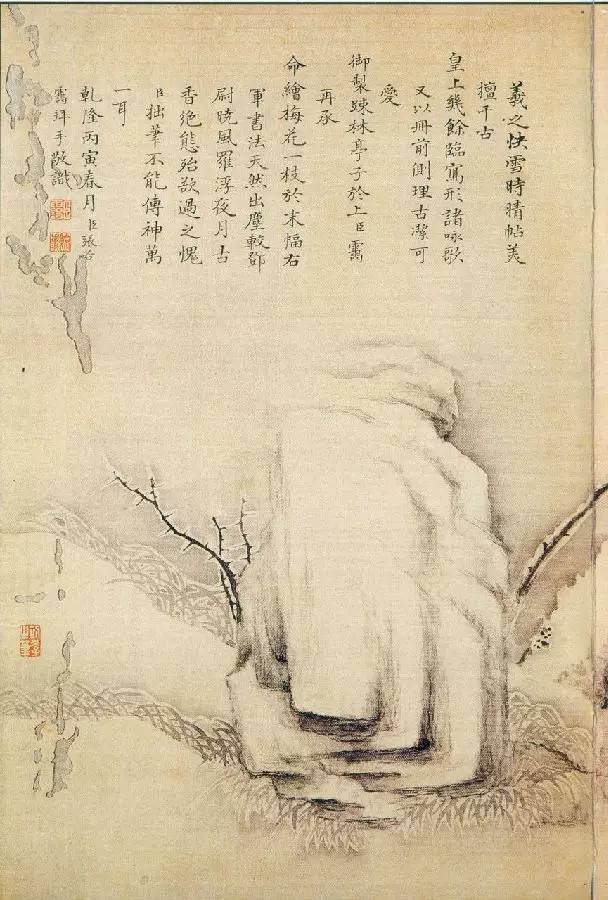 羲之快雪時晴帖美
擅千古
皇上幾餘臨寫形諸咏歌
又以冊前側理古潔可
愛
御製疎林亭子於上臣霱
再承
命繪梅花一枝於末幅右
軍書法天然出塵較鄧
尉曉風羅浮夜月古
香絶態殆欲過之愧
臣拙筆不能傳神萬
一耳
乾隆丙寅春月臣張若
霱拜手敬識